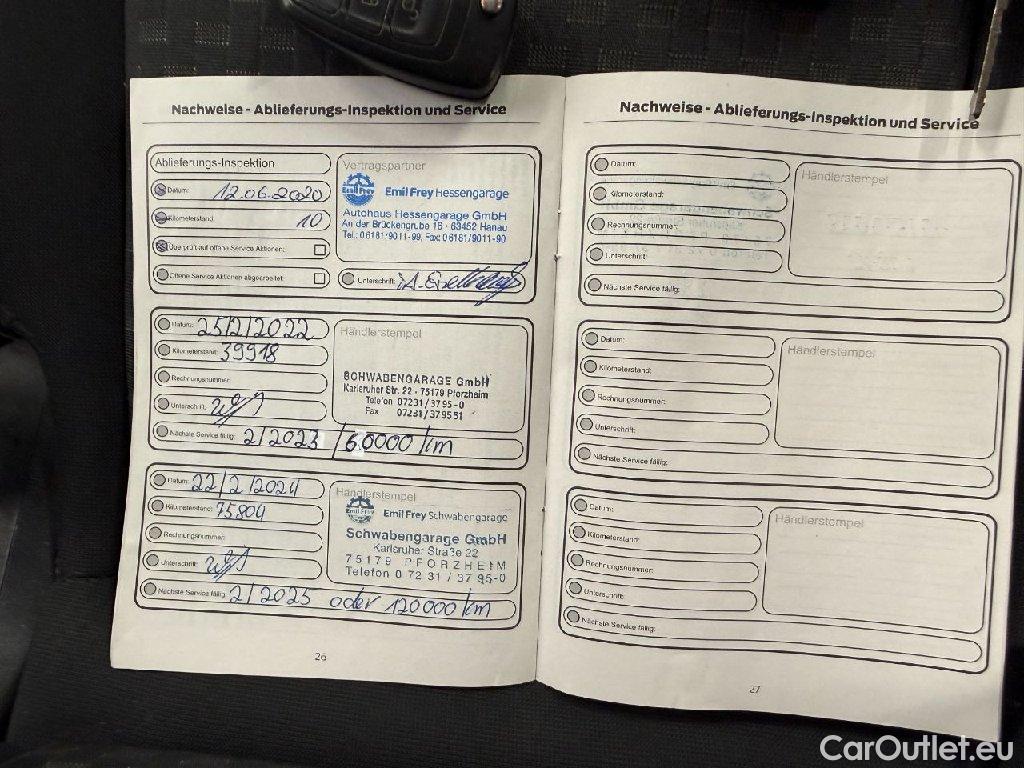 Nachweise - Ablieferungs-Inspektion und Service
Ablieferungs-Inspektion
Datum: 12.06.2020
Kilometerstand: 10
Überprüft auf offene Service Aktionen:
Offene Service Aktionen abgearbeitet:
Vertragspartner
Emil Frey Emil Frey Hessengarage
Autohaus Hessengarage GmbH
An der Brückengrube 18 - 63452 Hanau
Tel.: 06181/9011-99, Fax: 06181/9011-90
Unterschrift:
Datum: 25/2/2022
Kilometerstand: 39918
Rechnungsnummer:
Unterschrift:
Nächste Service fällig: 2/2023 / 60000 km
Händlerstempel
SCHWABENGARAGE GmbH
Karlsruher Str. 22 - 75179 Pforzheim
Telefon 07231/3795-0
Fax 07231/379551
Datum: 22/2/2024
Kilometerstand: 75804
Rechnungsnummer:
Unterschrift:
Nächste Service fällig: 2/2025 oder 120000 km
Händlerstempel
Emil Frey Emil Frey Schwabengarage
Schwabengarage GmbH
Karlsruher Straße 22
75179 PFORZHEIM
Telefon 0 72 31 / 37 95-0
26
Nachweise - Ablieferungs-Inspektion und Service
Datum:
Kilometerstand:
Rechnungsnummer:
Unterschrift:
Nächste Service fällig:
Händlerstempel
Datum:
Kilometerstand:
Rechnungsnummer:
Unterschrift:
Nächste Service fällig:
Händlerstempel
Datum:
Kilometerstand:
Rechnungsnummer:
Unterschrift:
Nächste Service fällig:
Händlerstempel
27
CarOutlet.eu